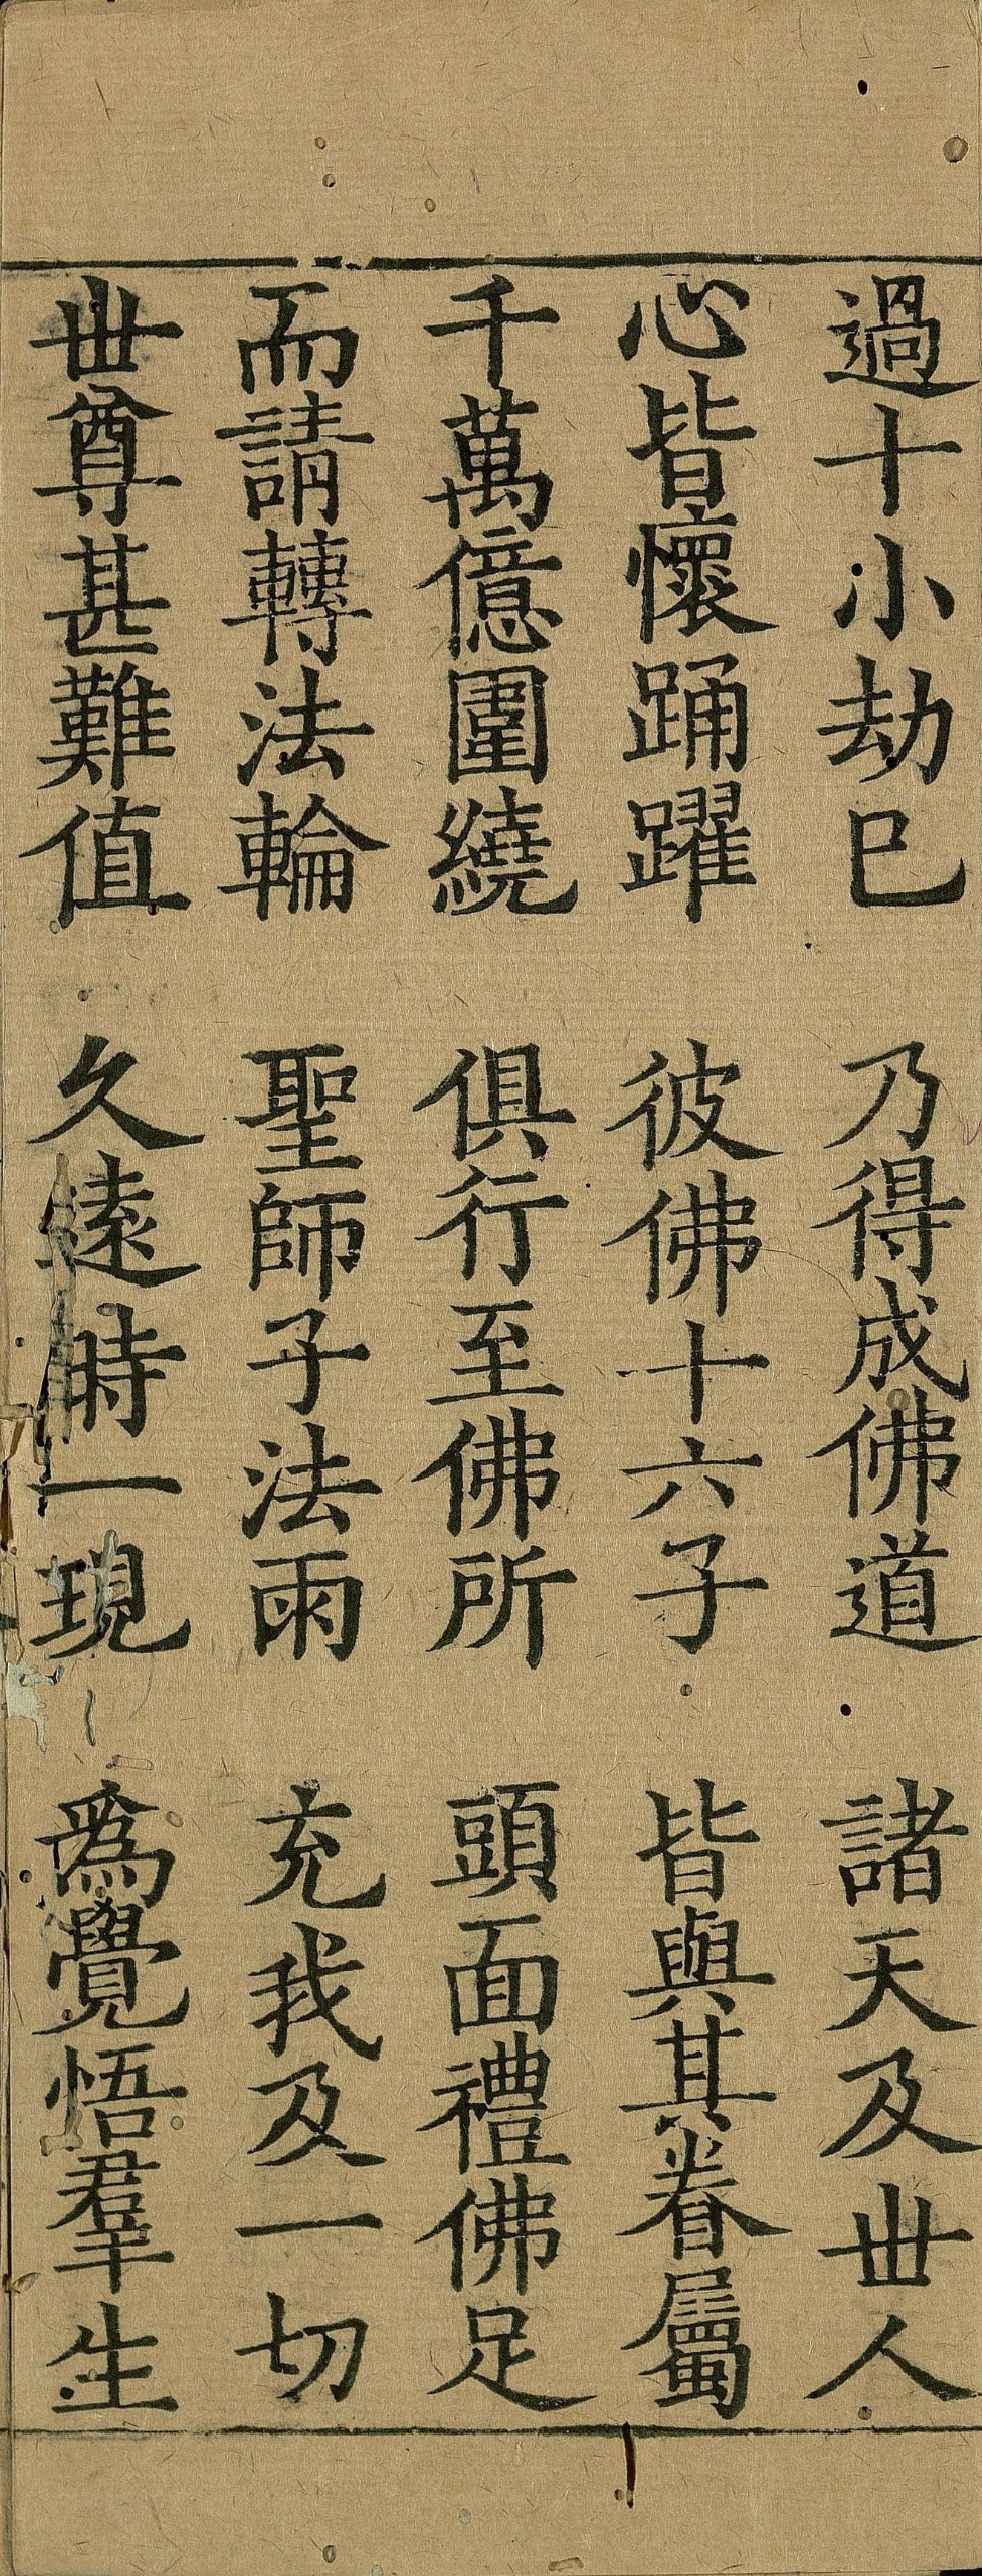 過十小劫已　乃得成佛道　諸天及丗人
心皆懷踊躍　彼佛十六子　皆與其眷屬
千萬億圍繞　俱行至佛所　頭面禮佛足
而請轉法輪　聖師子法雨　充我及一切
丗尊甚難值　久遠時一現　爲覺悟羣生